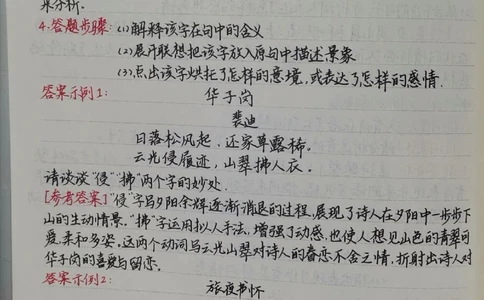 来分析.
4.答题步骤: (1)解释该字在句中的含义
(2)展开联想把该字放入原句中描述景象
(3)点出该字烘托了怎样的意境,或表达了怎样的感情.
答案示例1: 华子岗
裴迪
日落松风起,还家草露稀。
云光侵履迹,山翠拂人衣。
请谈谈“侵”“拂”两个字的妙处.
[参考答案]“侵”字写夕阳余辉逐渐消退的过程,展现了诗人在夕阳中一步步下
山的生动情景。“拂”字运用拟人手法,增强了动感,也使人想见山色的青翠可
爱,柔和多姿,这两个动词写云光山翠对诗人的眷恋不舍之情,折射出诗人对
华子岗的喜爱与留恋.
答案示例2: 旅夜书怀